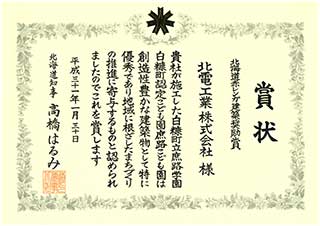 賞状
北海道赤レンガ建築奨励賞
北電工業株式会社 様
貴社が施工した白糠町立庶路学園
白糠町認定こども園庶路こども園は
創造性豊かな建築物として特に
優秀であり地域に根ざしたまちづくり
の推進に寄与するものと認められ
ましたのでこれを賞します
平成三十一年一月三十日
北海道知事 高橋はるみ